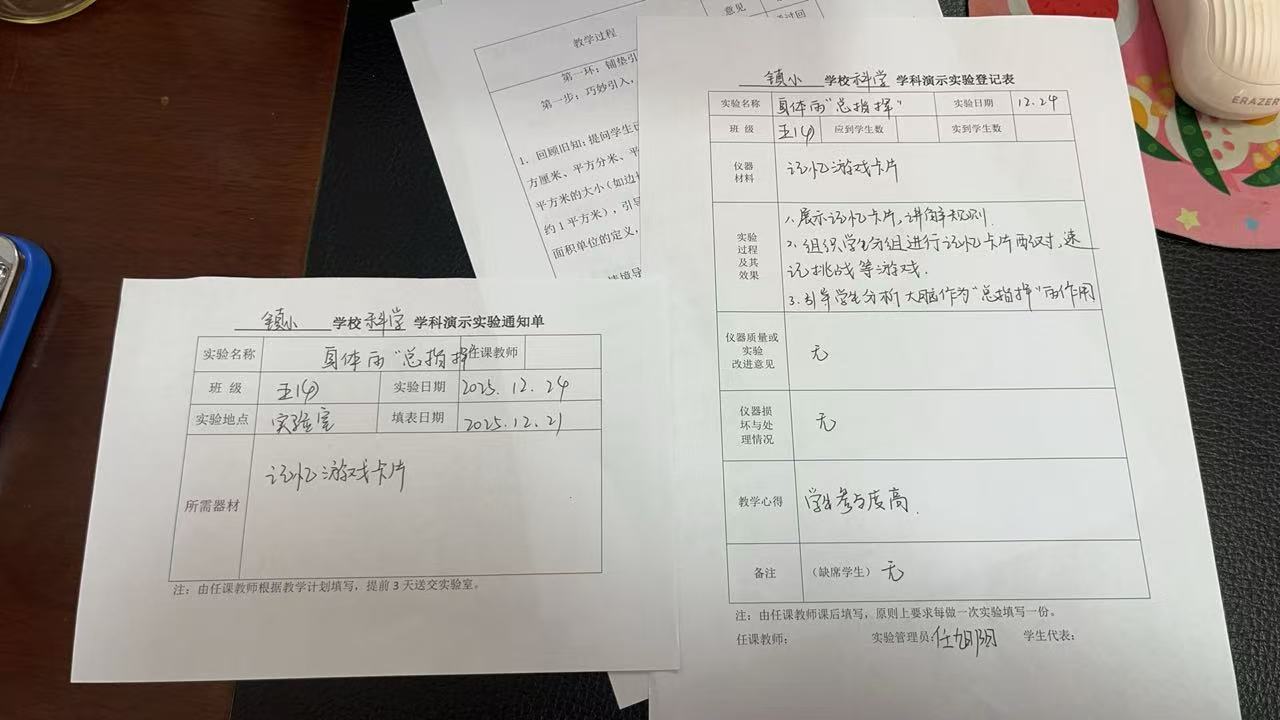 镇小 学校 科学 学科演示实验通知单
实验名称 身体的“总指挥” 任课教师
班 级 五(4) 实验日期 2025.12.24
实验地点 实验室 填表日期 2025.12.21
所需器材 记忆游戏卡片
注：由任课教师根据教学计划填写，提前 3 天送交实验室。
教学过程
第一环：铺垫引
第一步：巧妙引入，
1. 回顾旧知：提问学生已
方厘米、平方分米、平
平方米的大小（如边
约 1 平方米），引导
面积单位的定义，
意见
镇小 学校 科学 学科演示实验登记表
实验名称 身体的“总指挥” 实验日期 12.24
班 级 五(4) 应到学生数 实到学生数
仪器
材料
记忆游戏卡片
实验
过程
及其
效果
1. 展示记忆卡片，讲解规则.
2. 组织学生分组进行记忆卡片配对，速
记挑战等游戏.
3. 引导学生分析大脑作为“总指挥”的作用
仪器质量或
实验
改进意见
无
仪器损
坏与处
理情况
无
教学心得 学生参与度高.
备注 （缺席学生） 无
注：由任课教师课后填写，原则上要求每做一次实验填写一份。
任课教师： 实验管理员：任旭阳 学生代表：
ERAZER